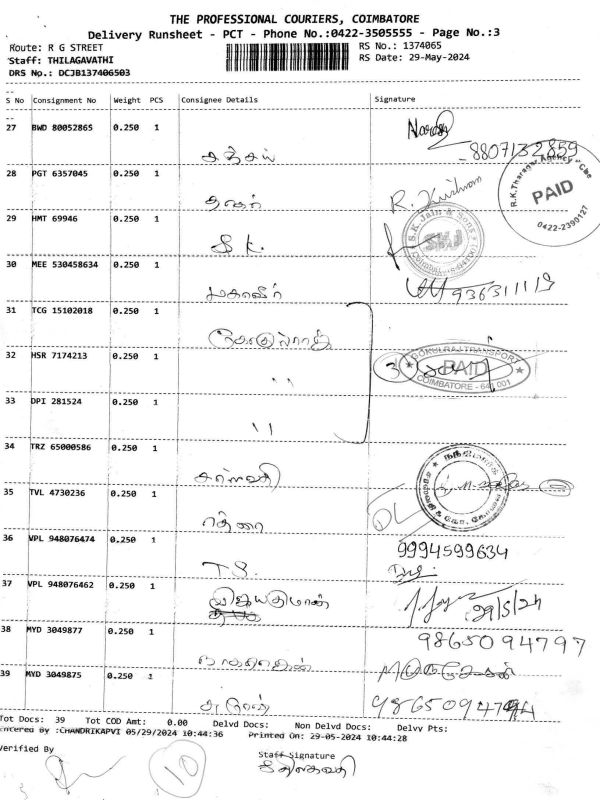 THE PROFESSIONAL COURIERS, COIMBATORE
Delivery Runsheet - PCT - Phone No.:0422-3505555 - Page No.:3
Route: R G STREET RS No.: 1374065
Staff: THILAGAVATHI RS Date: 29-May-2024
DRS No.: DCJB137406503
S No Consignment No Weight PCS Consignee Details Signature
27 BWD 80052865 0.250 1
சுத்சய் 8807132859
28 PGT 6357045 0.250 1
தாகர் R. Krishnan
R.K.Tharagar Agency - Cbe
PAID
0422-2390127
29 HMT 69946 0.250 1
S.K. S.K. Jain & Sons
SKJ
30 MEE 530458634 0.250 1
மகாவீர் 936311119
31 TCG 15102018 0.250 1
கோகுல்ராஜ்
32 HSR 7174213 0.250 1
" 3 GOKULRAJ TRANSPORT
PAID
COIMBATORE - 641 001
33 DPI 281524 0.250 1
"
34 TRZ 65000586 0.250 1
சரஸ்வதி
35 TVL 4730236 0.250 1
36 VPL 948076474 0.250 1 9994599634
T.S.
37 VPL 948076462 0.250 1
விஜயகுமாரன் 29/5/24
38 MYD 3049877 0.250 1 9865094797
39 MYD 3049875 0.250 1
Tot Docs: 39 Tot COD Amt: 0.00 Delvd Docs: Non Delvd Docs: Delvy Pts:
Entered By :CHANDRIKAPVI 05/29/2024 10:44:36 Printed On: 29-05-2024 10:44:28
Verified By Staff Signature
10 திலகவதி